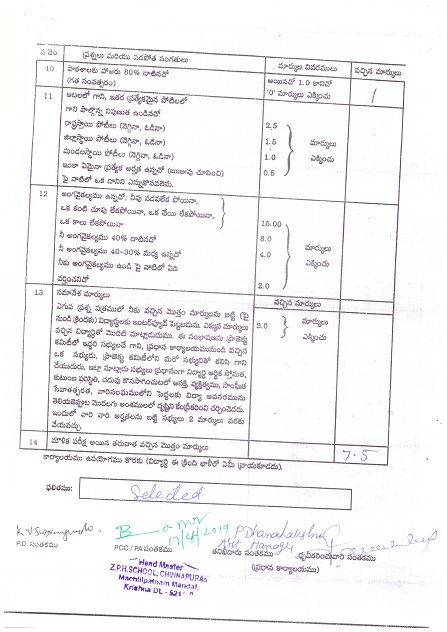 వ.నెం. ప్రశ్నలు మరియు పడపోత సంగతులు మార్కుల వివరములు వచ్చిన మార్కులు
10 పాఠశాలకు హాజరు 80% దాటినదో అయినచో 1.0 కానిచో 1
(గత సంవత్సరం) '0' మార్కులు ఎక్కించు
11 ఆటలలో గాని, ఇతర ప్రత్యేకమైన పోటీలలో
గాని పాల్గొన్న నిపుణత ఉండినదో
రాష్ట్రస్థాయి పోటీలు (నెగ్గినా, ఓడినా) 2.5
జిల్లాస్థాయి పోటీలు (నెగ్గినా, ఓడినా) 1.5 మార్కులు
మండలస్థాయి పోటీలు (నెగ్గినా, ఓడినా) 1.0 ఎక్కించు
ఇంకా ఏమైనా ప్రత్యేక అర్హత ఉన్నదో (ఋజువు చూపించి) 0.5
పై వాటిలో ఒక దానిని ఎన్నుకొనవలెను.
12 అంగవైకల్యము ఉన్నదో, నీవు నడవలేక పోయినా,
ఒక కంటి చూపు లేకపోయినా, ఒక చేయి లేకపోయినా,
ఒక కాలు లేకపోయినా 15.00
నీ అంగవైకల్యము 40% దాటినదో 8.0
నీ అంగవైకల్యము 40-30% మధ్య ఉన్నదో 4.0 మార్కులు
నీకు అంగవైకల్యము ఉండి పై వాటిలో ఏది ఎక్కించు
వర్తించనిచో 2.0
13 సమావేశ మార్కులు వచ్చిన మార్కులు
ఎగువ ప్రశ్న పత్రములో నీకు వచ్చిన మొత్తం మార్కులను బట్టి (పై
నుండి క్రిందకు) విద్యార్థులకు ఇంటర్వ్యూక్ పెట్టబడును. ఎక్కువ మార్కులు 2.0 మార్కులు
వచ్చిన విద్యార్థితో మొదటి మాట్లాడుదుము. ఈ సంభాషణను ప్రాజెక్టు ఎక్కించు
కమిటీలో ఇద్దరి సభ్యులచే గాని, ప్రధాన కార్యాలయమునుండి వచ్చిన
ఒక సభ్యుడు, ప్రాజెక్టు కమిటీలోని మరో సభ్యునితో కలిసి గాని
చేయుదురు. ఇట్లా మాట్లాడు సభ్యులు ప్రధానంగా విద్యార్థి ఆర్థిక స్తోమత,
కుటుంబ పరిస్థితి, చదువు కొనసాగించుటలో ఆసక్తి, వ్యక్తిత్వము, సాంఘిక
సేవాతత్పరత, వారిసంఘములోని పెద్దలకు విద్యా అవసరమును
తెలియజెప్పుట మొదలగు అంశములలో దృష్టిని కేంద్రీకరించి చర్చించెదరు.
ఇందులో వారి వారి అర్హతలను బట్టి సభ్యులు 2 మార్కులు వరకు
వేయవచ్చు.
14 మౌళిక పరీక్ష అయిన తరువాత వచ్చిన మొత్తం మార్కులు 7.5
కార్యాలయము ఉపయోగము కొరకు (విద్యార్థి ఈ క్రింది ఖాళీలో ఏమీ వ్రాయకూడదు).
ఫలితము: Selected
17/4/2019
Asst Manager
P.D. సంతకము PCC / PA సంతకము తనిఖీదారు సంతకము ధృవీకరించువారి సంతకము
(ప్రధాన కార్యాలయము)
Head Master
Z.P.H.SCHOOL, CHINNAPURAM
Machilipatnam Mandal,
Krishna DL - 521